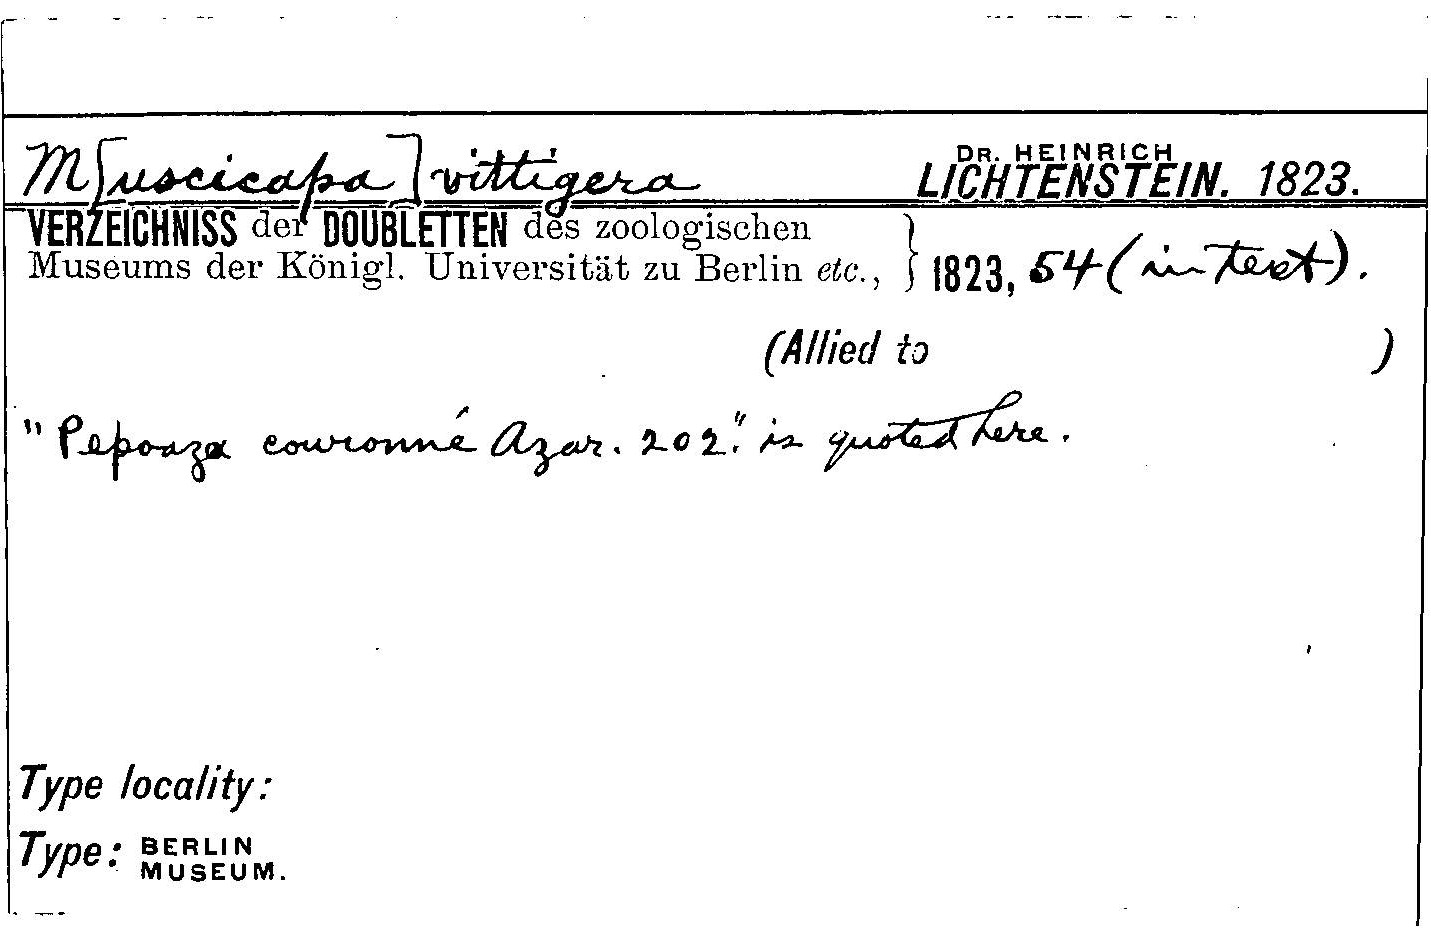 M[uscicapa] vittigera DR. HEINRICH LICHTENSTEIN. 1823.
VERZEICHNISS der DOUBLETTEN des zoologischen
Museums der Königl. Universität zu Berlin etc., } 1823, 54 (in text).
(Allied to )
"Pepoaza couronné Azar. 202." is quoted here.
Type locality:
Type: BERLIN MUSEUM.